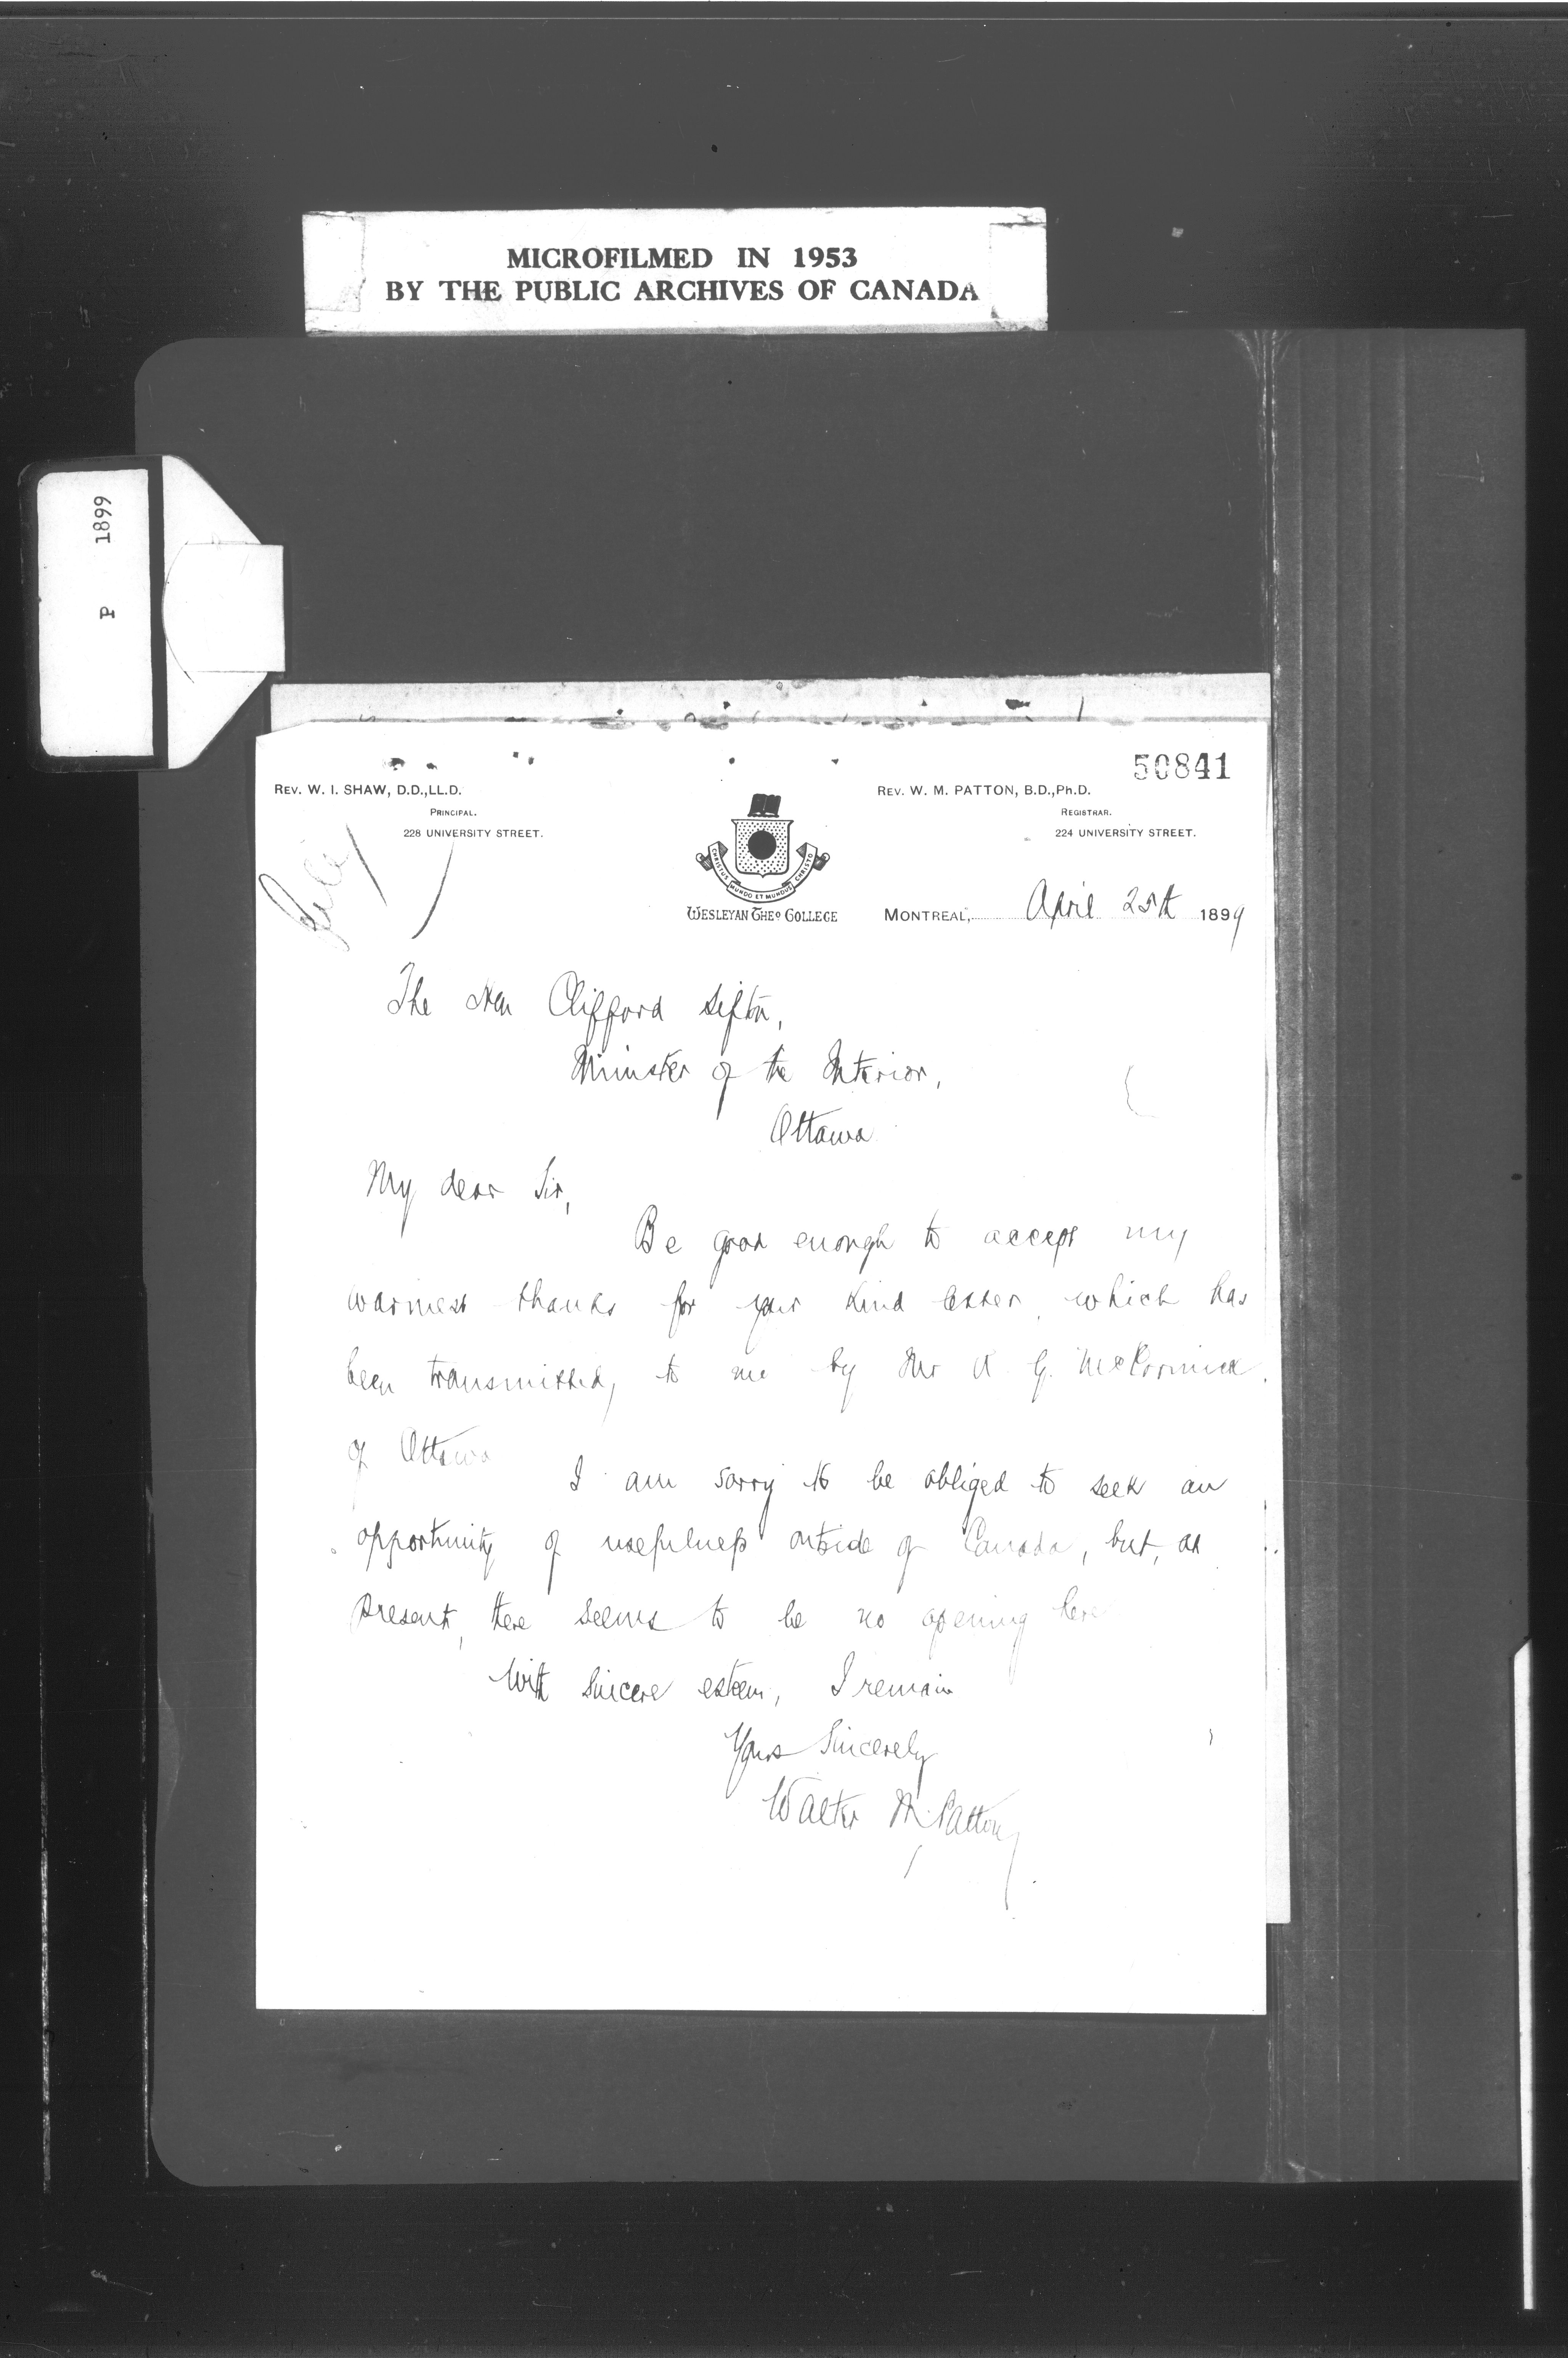 MICROFILMED IN 1953
BY THE PUBLIC ARCHIVES OF CANADA
P 1899
50841
REV. W. I. SHAW, D.D., LL.D.
PRINCIPAL.
228 UNIVERSITY STREET.
REV. W. M. PATTON, B.D., Ph.D.
REGISTRAR.
224 UNIVERSITY STREET.
CHRISTUS MUNDO ET MUNDUS CHRISTO
WESLEYAN THEO COLLEGE
MONTREAL, April 25th 1899
The Hon Clifford Sifton,
Minister of the Interior,
Ottawa
My dear Sir,
Be good enough to accept my
warmest thanks for your kind letter, which has
been transmitted, to me by Mr G. McCormick
of Ottawa
I am sorry to be obliged to seek an
opportunity of usefulness outside of Canada, but, at
present, there seems to be no opening here
With sincere esteem, I remain
Yours Sincerely
Walter M. Patton